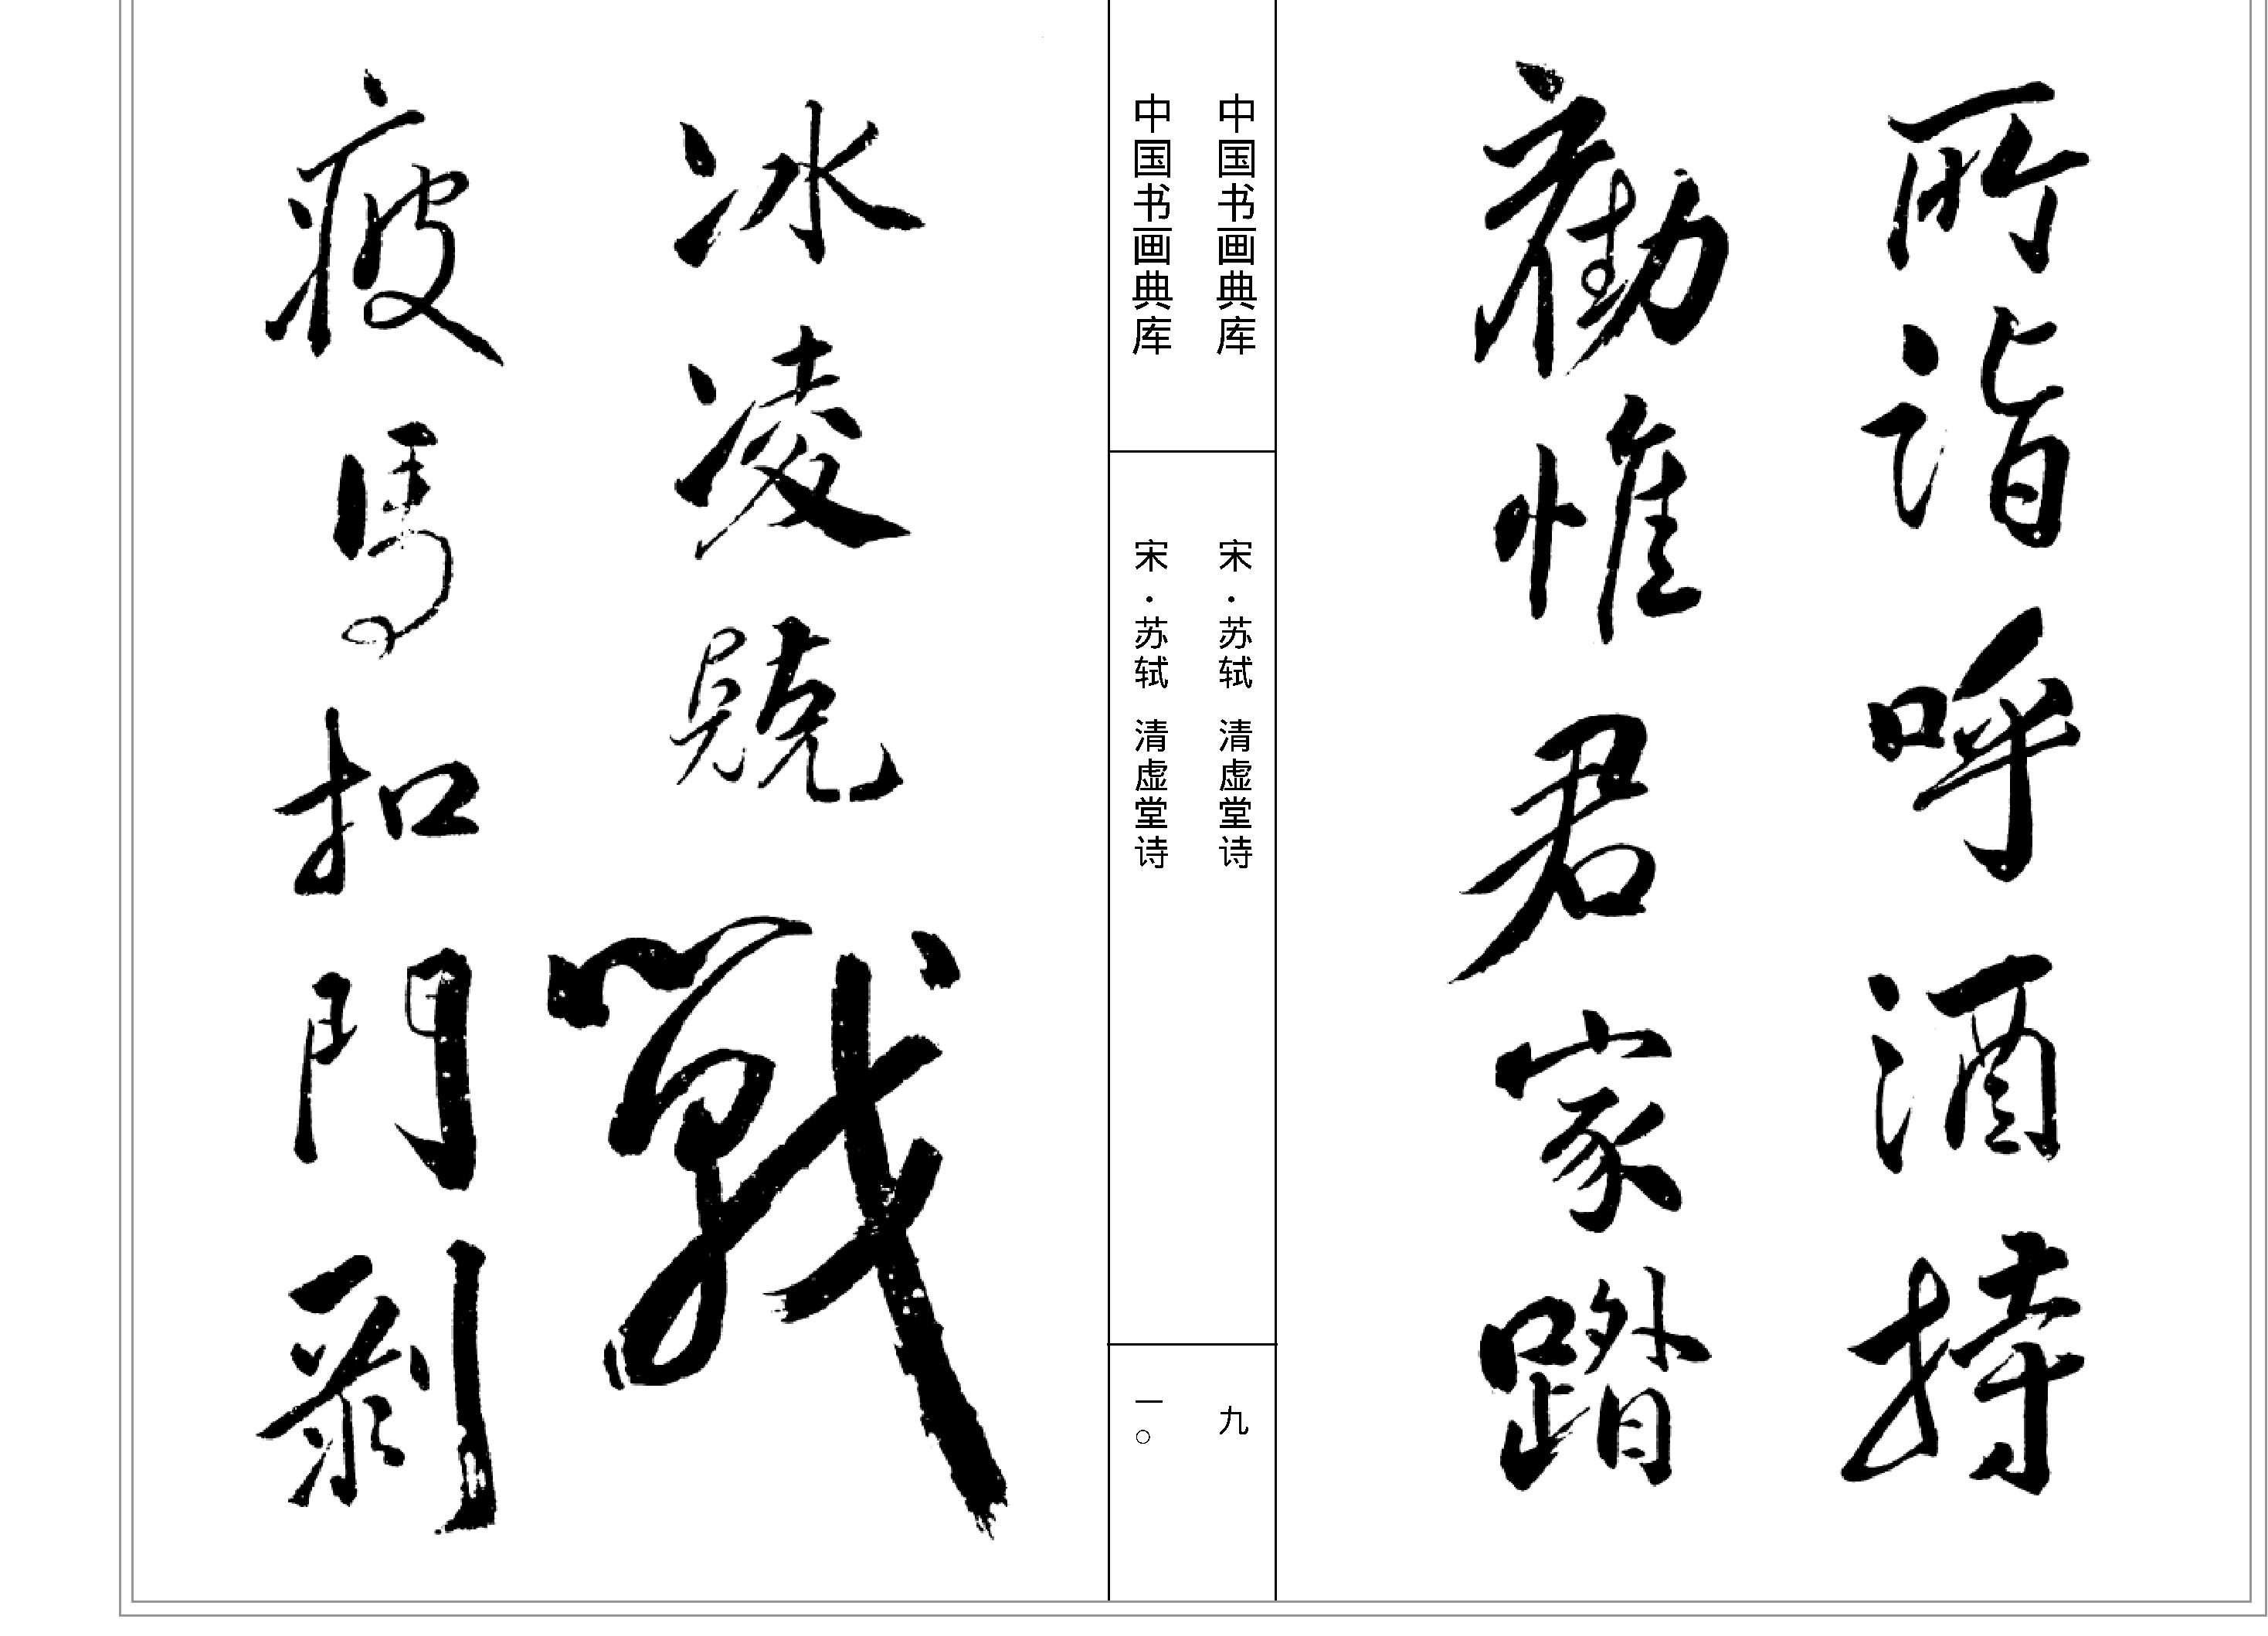 所詣呼酒持
勸惟君家踏
中国书画典库
宋·苏轼 清虚堂诗
九
中国书画典库
宋·苏轼 清虚堂诗
一〇
冰凌兢戰
疲馬扣門剝